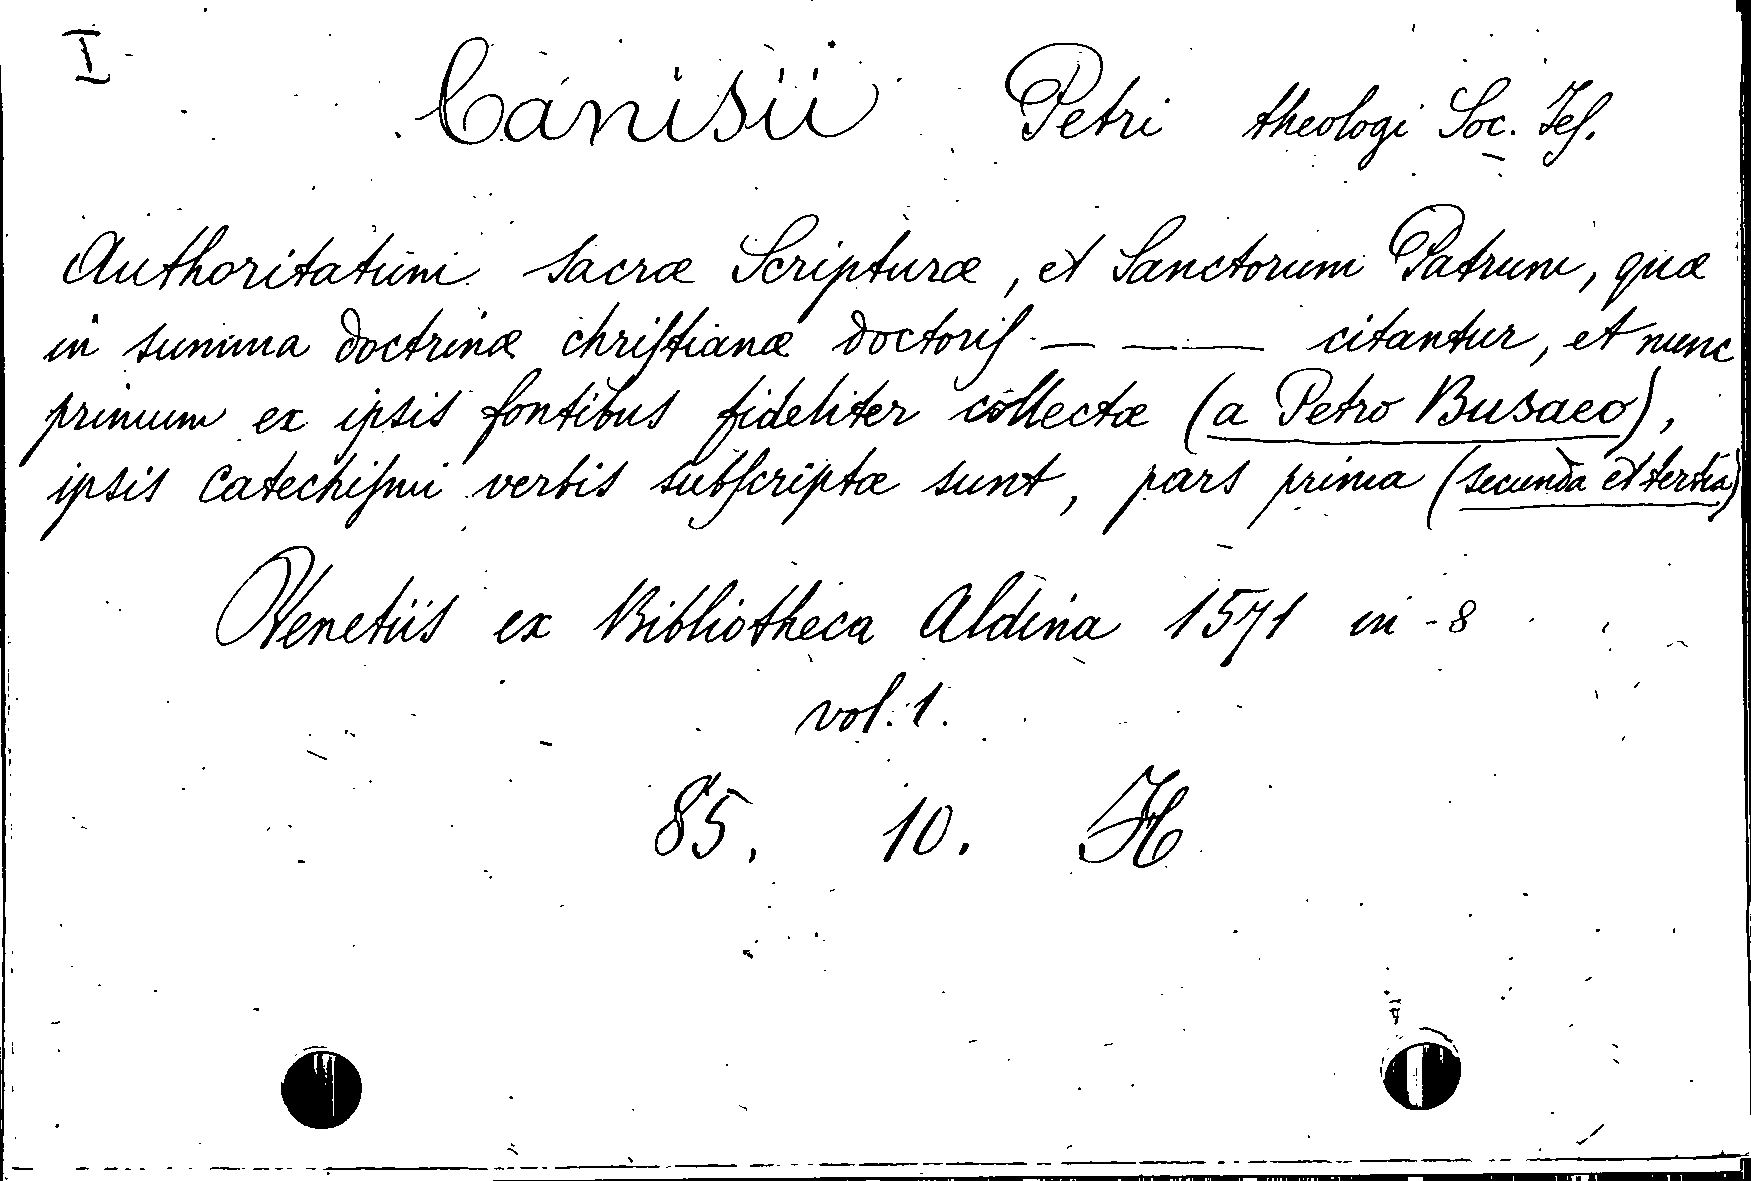 I
Canisii Petri theologi Soc. Jeſ.
Authoritatum sacræ Scripturæ, et Sanctorum Patrum, quæ
in summa doctrinæ chriſtianæ doctoriſ — — citantur, et nunc
primum ex ipsis fontibus fideliter collectæ (a Petro Busaeo),
ipsis catechiſmi verbis subſcriptæ sunt, pars prima (secunda et tertia)
Venetiis ex Bibliotheca Aldina 1571 in-8
vol. 1.
85. 10. H